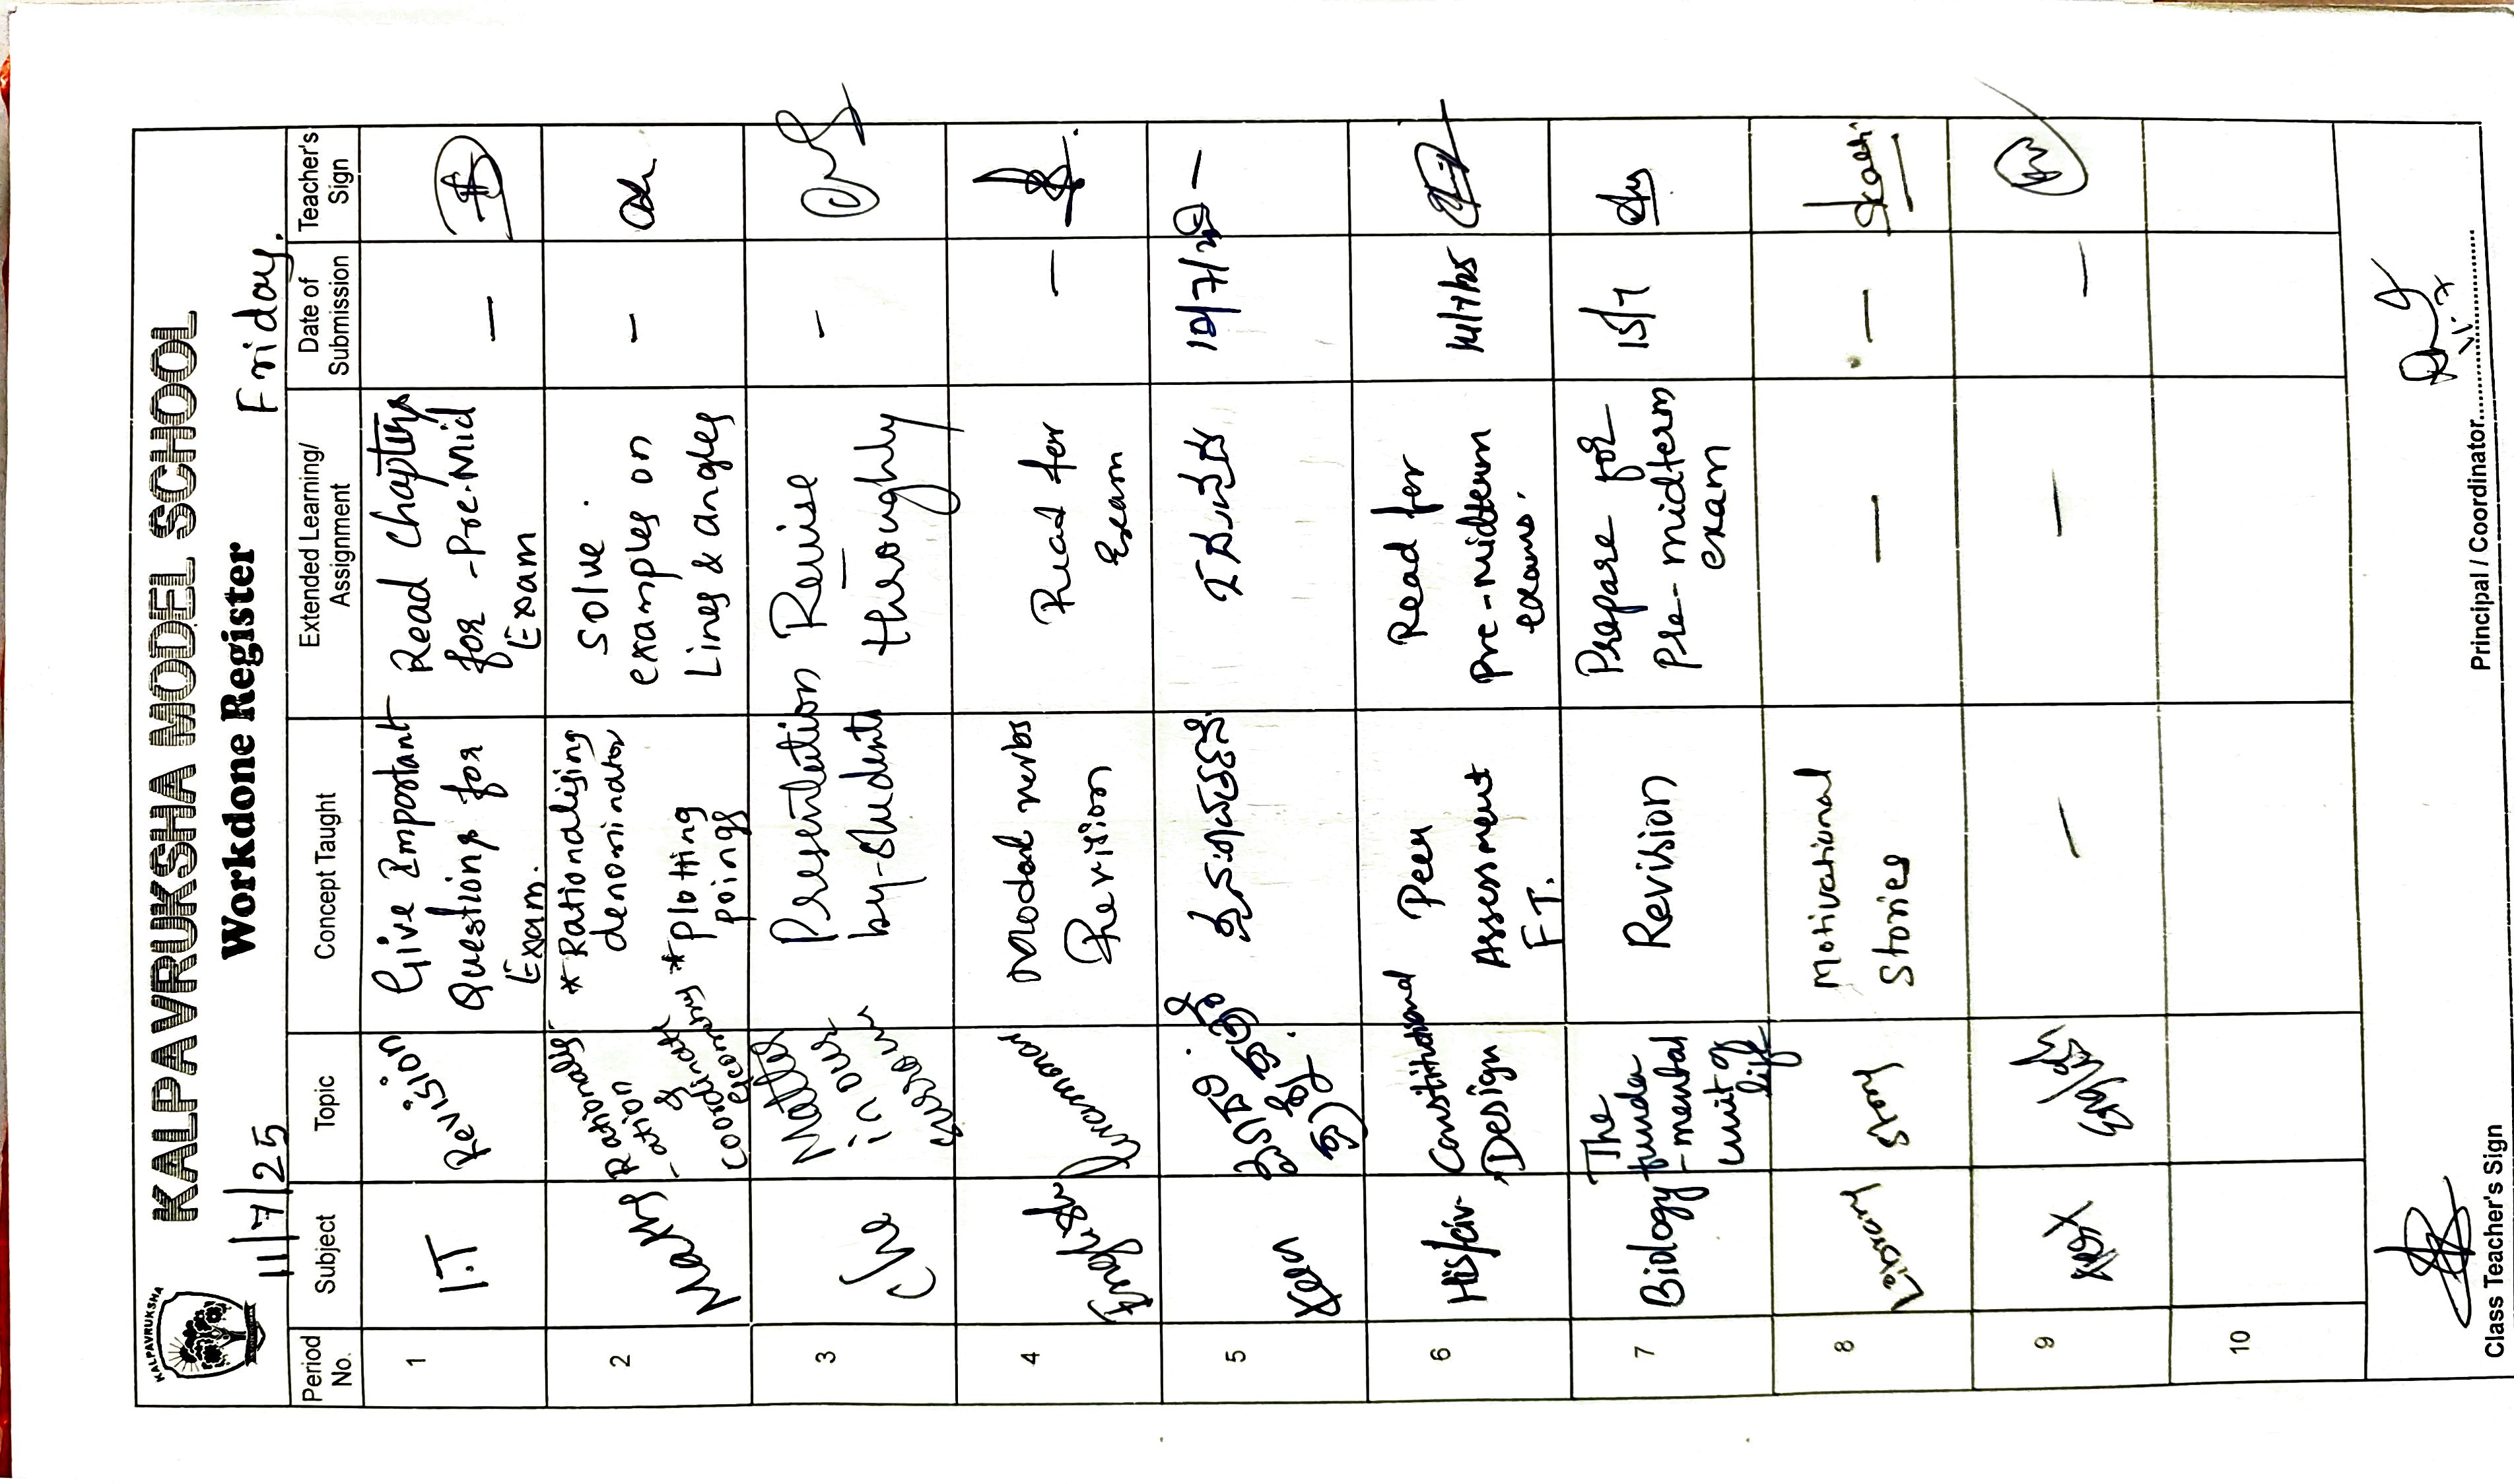 KALPAVRUKSHA
KALPAVRUKSHA MODEL SCHOOL
Workdone Register
11/7/25
Friday.
Period No. Subject Topic Concept Taught Extended Learning/ Assignment Date of Submission Teacher's Sign
1 I.T Revision Give Important
Questions for
Exam.
Read Chapters
for -Pre-Mid
Exam
—
2 Maths
Rationalis
-ation
&
Coordinate
Geometry
*Rationalising
denominator
*plotting
points
Solve
examples on
Lines & angles
–
3 Che
Matter
in our
Presentation
by-students
Revise
–
thoroughly
–
4 English Grammar
Modal verbs
Revision
Read for
Exam
—
5 Kan
10/7/25
6 His/civ-
Constitutional
Design
Peer
Assessment
F.T.
Read for
pre-midterm
exams.
7 Biology
The
funda
-mental
unit of
life
Revision
Prepare for
pre-midterm
exam
15/7
8 Library Story
Motivational
Stories
—
—
9
—
—
—
10
Class Teacher's Sign
Principal / Coordinator